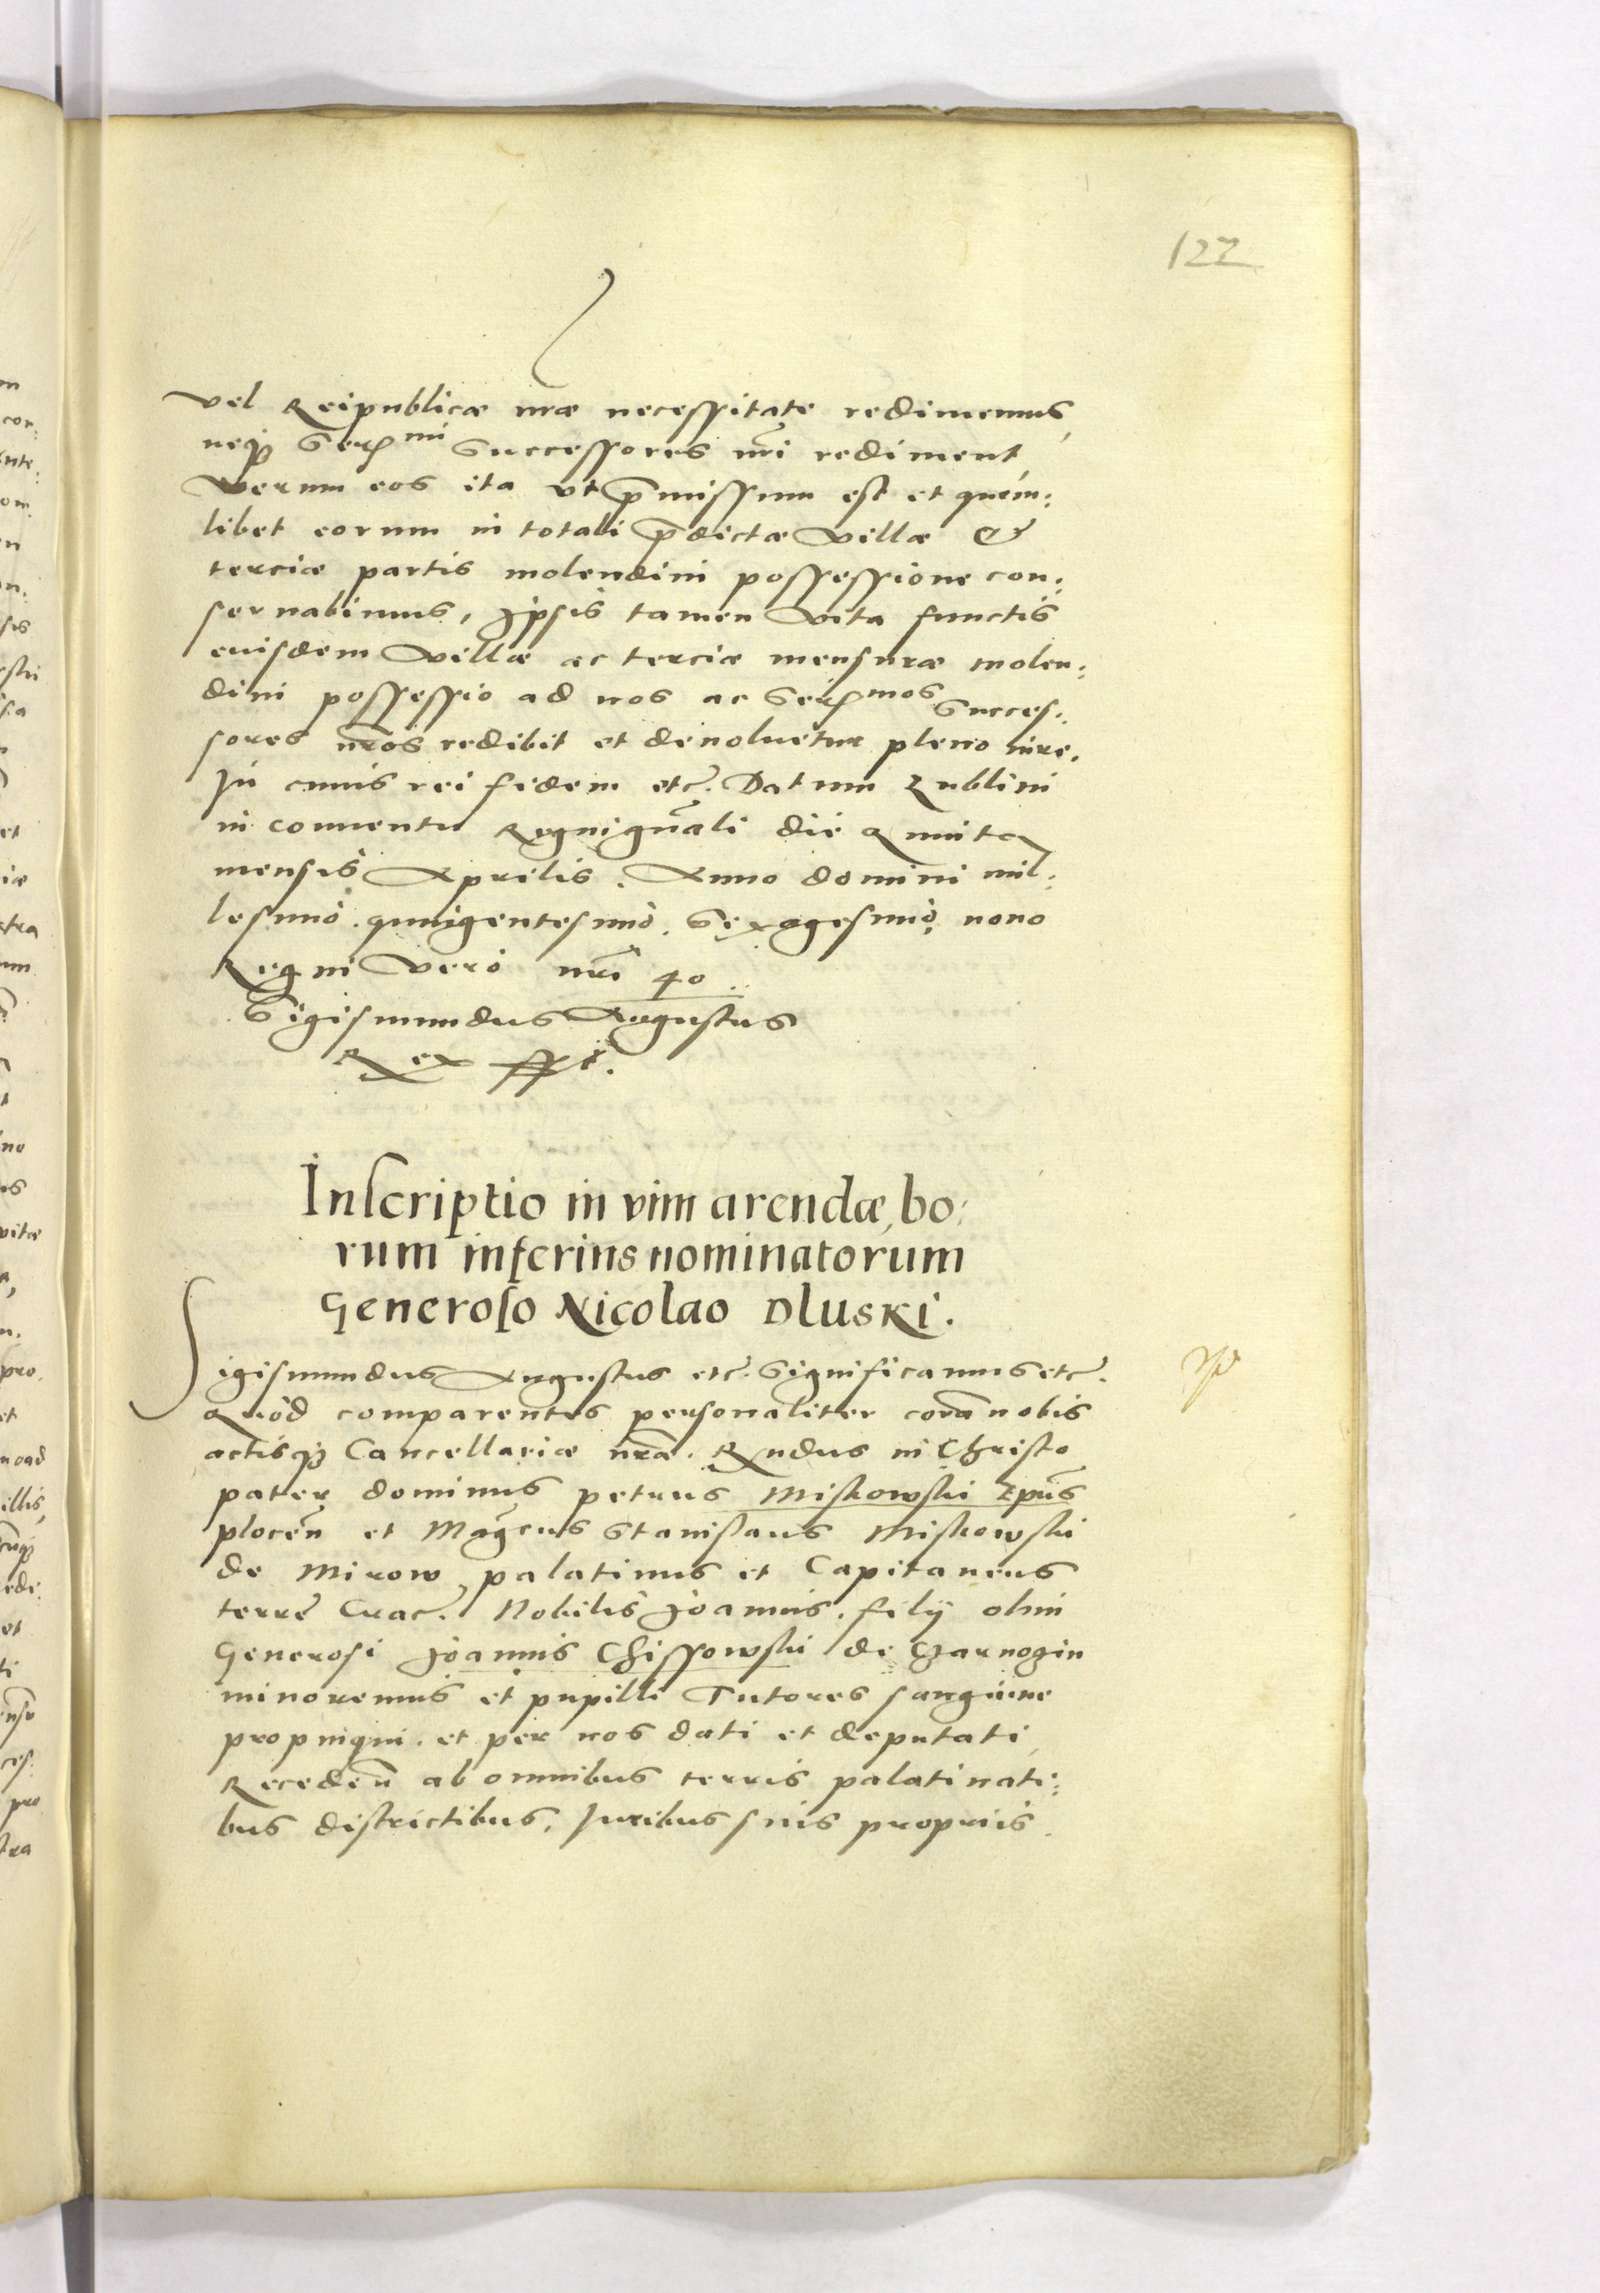 122
vel Reipublicæ nræ necessitate redimemus,
neqꝫ Serᵐⁱ Successores nri rediment,
Verum eos ita vt p̄missum est et quem:
libet eorum in totali p̄dictæ Villæ &
terciæ partis molendini possessione con:
seruabimus, Ipsis tamen Vita functis
euisdem Villæ ac terciæ mensuræ molen:
dini possessio ad nos ac Serᵐᵒˢ Succes:
sores nr̄os redibit et deuoluetur pleno iure.
In cuius rei fidem etc. Datum Lublini
in conuentu Regni gn̄ali die Quinta
mensis Aprilis. Anno domini mil:
lesimo. quingentesimo. Sexagesimo, nono
Regni Vero nr̄i 40.
Sigismundus Augustus
Rex sst.
Inscriptio in vim arendæ, bo:
rum inferius nominatorum
Generoso Nicolao Dluski.
Sigismundus Augustus etc. Significamus etc.
Quod comparentes personaliter corā nobis
actisqꝫ Cancellariæ nr̄a. Rndus in Christo
pater dominus petrus Miskowski Epūs
plocen̄ et Magcus Stanislaus Miskowski
de Mirow, palatinus et Capitaneus
terre Crac. Nobilis Joannis. filij olim
Generosi Joannis Chissowski de Czarnozin
minorennis et pupilli Tutores sanguine
propinqui. et per nos dati et deputati,
Receden̄ ab omnibus terris palatinati:
bus districtibus, Iuribus suis propriis.